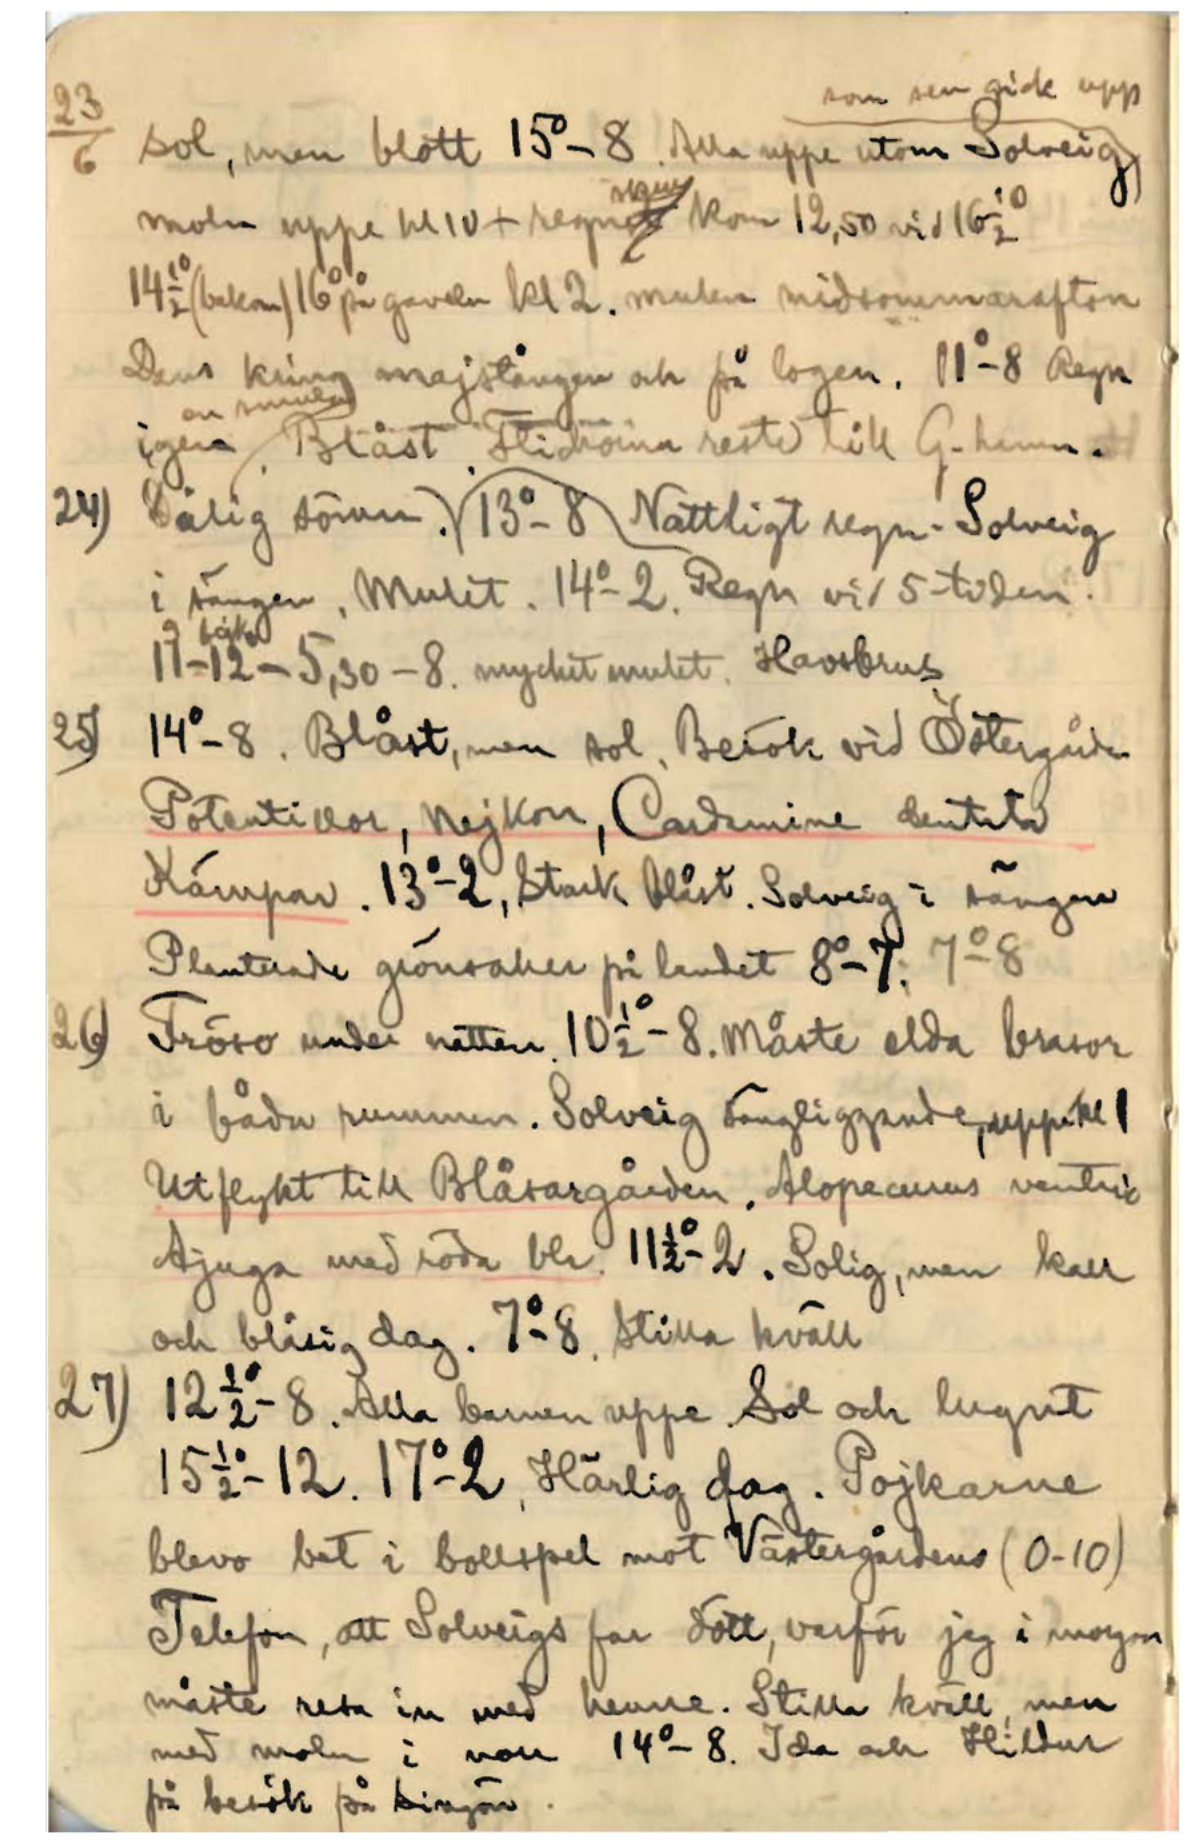 som sen gick upp
23/6 sol, men blott 15°-8. Alla uppe utom Solveig
moln uppe kl 10 + regn kom 12,50 vid 16½°
14½° (bakom) 16° på gaveln kl 2. mulen midsommarafton
Dans kring majstången och på logen. 11°-8 Regn
en smula
igen. Blåst. Flickorna reste till G-hemm.
24) Dålig sömn. 13°-8 Nattligt regn. Solveig
i sängen. Mulet. 14°-2. Regn vid 5-tiden.
11-12-5,30-8. mycket mulet. Havsbrus
25) 14°-8. Blåst, men sol. Besök vid Östergården
Potentillor, Nejkon, Cardamine dentata
Kämpar. 13°-2, Stark blåst. Solveig i sängen
Planterade grönsaker på landet 8°-7. 7°-8
26) Fröso under natten. 10½°-8. Måste elda brasor
i båda rummen. Solveig sängliggande, uppe kl 1
Utflykt till Blåsargården. Alopecurus ventric
Ajuga med röda blr. 11½°-2. Solig, men kall
och blåsig dag. 7°-8. Stilla kväll
27) 12½°-8. Alla barnen uppe. Sol och lugnt
15½°-12. 17°-2. Härlig dag. Pojkarne
blevo bet i bollspel mot Västergårdens (0-10)
Telefon, att Solveigs far dött, varför jag i morgon
måste resa in med henne. Stilla kväll, men
med moln i norr 14°-8. Ida och Hildur
på besök på Singön.